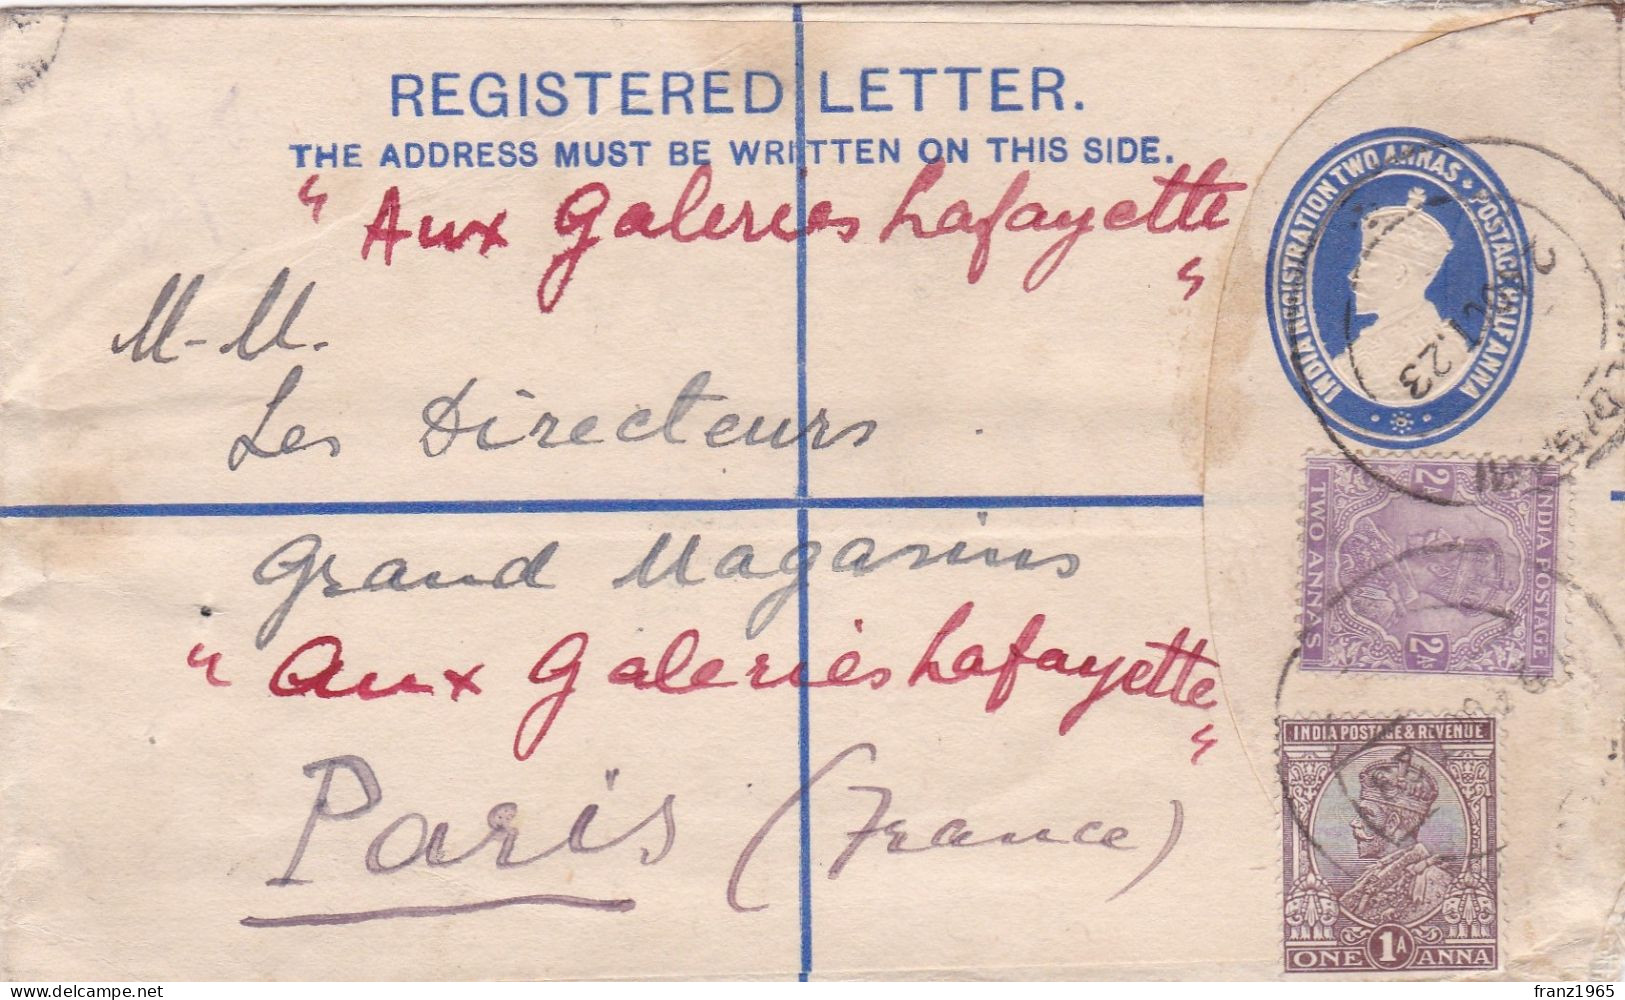 REGISTERED LETTER.
THE ADDRESS MUST BE WRITTEN ON THIS SIDE.
" Aux Galeries Lafayette "
M-M.
Les Directeurs
Grand Magasins
" Aux Galeries Lafayette "
Paris (France)
INDIA REGISTRATION TWO ANNAS • POSTAGE HALF ANNA
2 OCT. 23
INDIA POSTAGE
2A 2A
TWO ANNAS
INDIA POSTAGE & REVENUE
ONE 1A ANNA
delcampe.net
franz1965